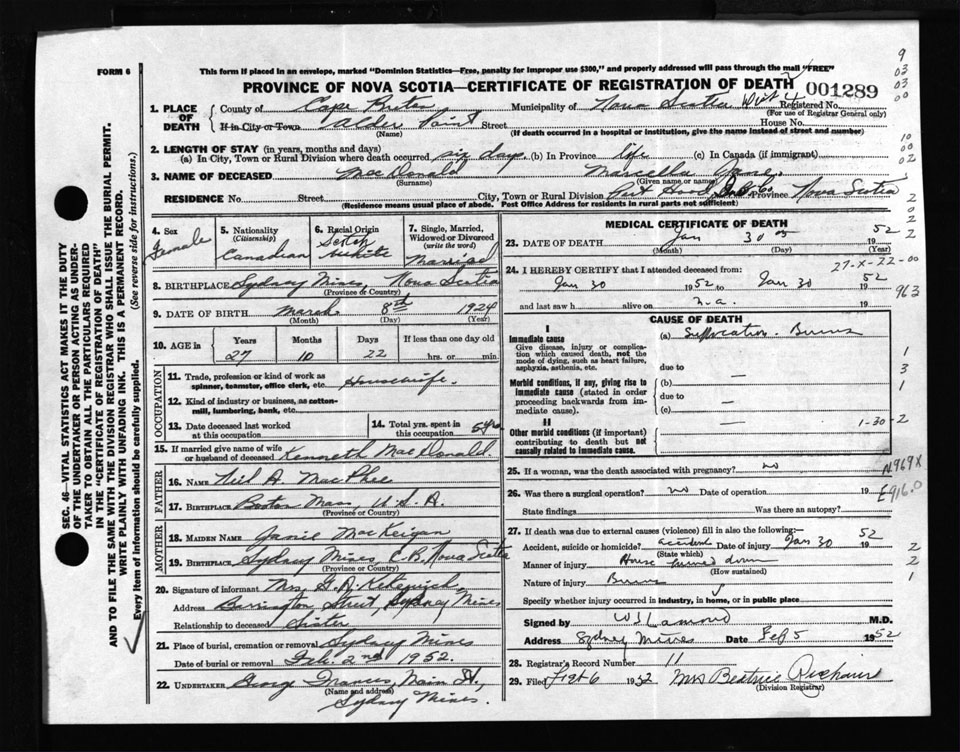 FORM 6
This form if placed in an envelope, marked "Dominion Statistics—Free, penalty for improper use $300," and properly addressed will pass through the mail "FREE"
PROVINCE OF NOVA SCOTIA—CERTIFICATE OF REGISTRATION OF DEATH 001289
1. PLACE OF DEATH County of Cape Breton Municipality of Nova Scotia Registered No.
(For use of Registrar General only)
If in City or Town Alder Point Street House No.
(Name) (If death occurred in a hospital or institution, give the name instead of street and number)
2. LENGTH OF STAY (in years, months and days)
(a) In City, Town or Rural Division where death occurred six days (b) In Province life (c) In Canada (if immigrant)
3. NAME OF DECEASED MacDonald Marcella Jane
(Surname) (Given name or names)
RESIDENCE No. Street City, Town or Rural Division Province Nova Scotia
(Residence means usual place of abode. Post Office Address for residents in rural parts not sufficient)
4. Sex Female
5. Nationality (Citizenship) Canadian
6. Racial Origin Scotch White
7. Single, Married, Widowed or Divorced (write the word) Married
8. BIRTHPLACE Sydney Mines, Nova Scotia
(Province or Country)
9. DATE OF BIRTH March 8th 1924
(Month) (Day) (Year)
10. AGE in Years Months Days If less than one day old
27 10 22 hrs. or min.
OCCUPATION
11. Trade, profession or kind of work as spinner, teamster, office clerk, etc. Housewife.
12. Kind of industry or business, as cotton-mill, lumbering, bank, etc.
13. Date deceased last worked at this occupation
14. Total yrs. spent in this occupation 5 yrs
15. If married give name of wife or husband of deceased Kenneth MacDonald.
FATHER
16. NAME Neil A. MacPhee
17. BIRTHPLACE Boston Mass, U.S.A
(Province or Country)
MOTHER
18. MAIDEN NAME Janie MacKeigan
19. BIRTHPLACE Sydney Mines C.B. Nova Scotia
(Province or Country)
20. Signature of informant Mrs.
Address Street, Sydney Mines
Relationship to deceased Sister
21. Place of burial, cremation or removal Sydney Mines
Date of burial or removal Feb. 2nd 1952.
22. UNDERTAKER George Frances, Main St,
(Name and address) Sydney Mines.
MEDICAL CERTIFICATE OF DEATH
23. DATE OF DEATH Jan 30 1952
(Month) (Day) (Year)
27-X-22-00
24. I HEREBY CERTIFY that I attended deceased from:
Jan 30 1952 to Jan 30 1952
and last saw h alive on n.a. 19
963
CAUSE OF DEATH
I
Immediate cause
Give disease, injury or complication which caused death, not the mode of dying, such as heart failure, asphyxia, asthenia, etc.
(a) Suffocation - Burns
due to
Morbid conditions, if any, giving rise to immediate cause (stated in order proceeding backwards from immediate cause)
(b) —
due to
(c) —
II
Other morbid conditions (if important) contributing to death but not causally related to immediate cause.
— 1-30-2
25. If a woman, was the death associated with pregnancy? no
N969X
26. Was there a surgical operation? no Date of operation 19
E916.0
State findings Was there an autopsy?
27. If death was due to external causes (violence) fill in also the following:—
Accident, suicide or homicide? accident Date of injury Jan 30 1952
(State which)
Manner of injury House burned down
(How sustained)
Nature of injury Burns
Specify whether injury occurred in industry, in home, or in public place
Signed by M.D.
Address Sydney Mines Date Feb 5 1952
28. Registrar's Record Number 11
29. Filed 6 1952 Mrs Beatrice
(Division Registrar)
SEC. 46—VITAL STATISTICS ACT MAKES IT THE DUTY OF THE UNDERTAKER OR PERSON ACTING AS UNDERTAKER TO OBTAIN ALL THE PARTICULARS REQUIRED IN THE "CERTIFICATE OF REGISTRATION OF DEATH" AND TO FILE THE SAME WITH THE DIVISION REGISTRAR WHO SHALL ISSUE THE BURIAL PERMIT.
WRITE PLAINLY WITH UNFADING INK. THIS IS A PERMANENT RECORD.
Every item of information should be carefully supplied. (See reverse side for instructions.)